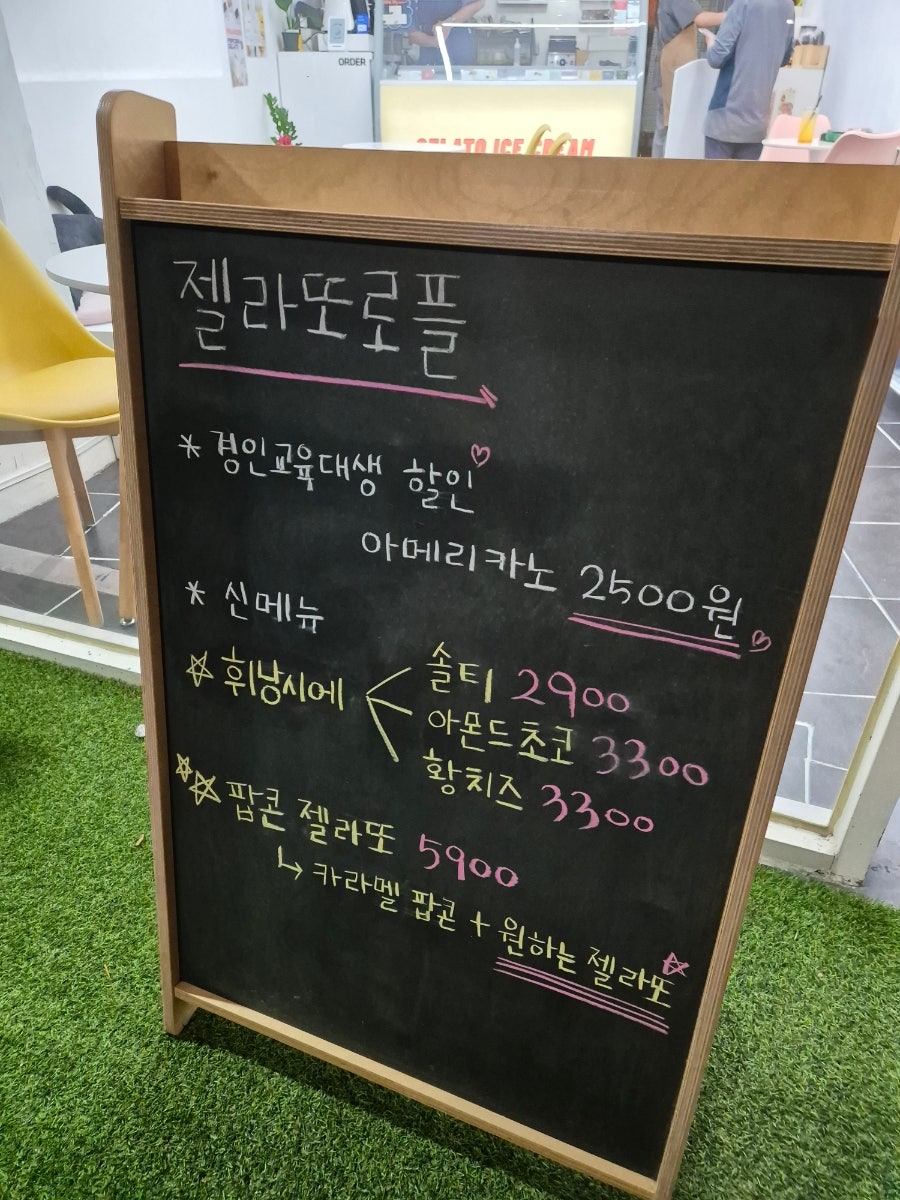 ORDER
GELATO ICE CREAM
젤라또로플
* 경인교육대생 할인
아메리카노 2500원
* 신메뉴
휘낭시에
솔티 2900
아몬드초코 3300
황치즈 3300
팝콘 젤라또 5900
↳ 카라멜 팝콘 + 원하는 젤라또